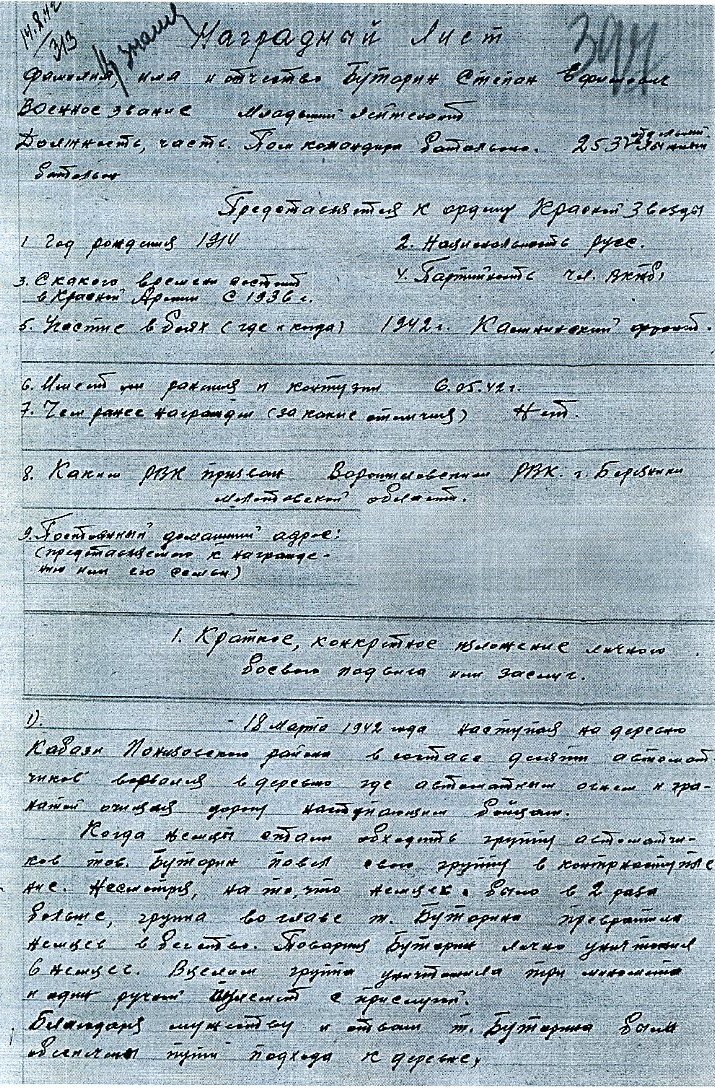 14.8.42
313
Кр знамя
397
Наградный Лист
Фамилия, имя и отчество Буторин Степан Ефимович
Военное звание Младший лейтенант
Должность, часть. Пом командира батальона. 253 отдельный
батальон
Представляется к ордену Красной Звезды
1 Год рождения 1914
2. Национальность русс.
3. С какого времени состоит
в Красной Армии С 1936 г.
4. Партийность чл. ВКПб,
5. Участие в боях (где и когда) 1942 г. Калининский фронт.
6. Имеет ли ранения и контузии 6.05.42 г.
7. Чем ранее награжден (за какие отличия) Нет.
8. Каким РВК призван Ворошиловским РВК. г. Березники
Молотовской области.
9. Постоянный домашний адрес:
(представляемого к награжде-
нию или его семьи)
1. Краткое, конкретное изложение личного
боевого подвига или заслуг.
1). 18 марта 1942 года наступая на деревню
Понизовского района в составе десяти автомат-
чиков ворвался в деревню где автоматным огнем и гра-
натой очищая дорогу наступающим бойцам.
Когда немцы стали обходить группу автоматчи-
ков тов. Буторин повел свою группу в контрнаступле
ние. Несмотря, на то, что немцев было в 2 раза
больше, группа во главе т. Буторина превратила
немцев в бегство. Товарищ Буторин лично уничтожил
6 немцев. Вцелом группа уничтожила три миномета
и один ручной пулемет с прислугой.
Благодаря мужеству и отваги т. Буторина были
обеспечены пути подхода к деревне,